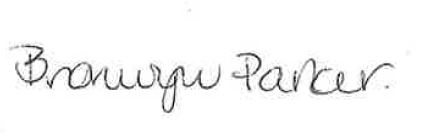 Bronwyn Parker.